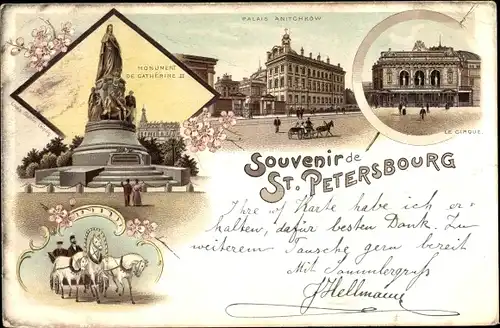 PALAIS ANITCHKOW
MONUMENT
DE CATHÉRINE II
LE CIRQUE.
Souvenir de
ST. PETERSBOURG
Ihre Karte habe ich er-
halten, dafür besten Dank. Zu
weiterem Tausche gern bereit
Mit Sammlergruß
Hellmann